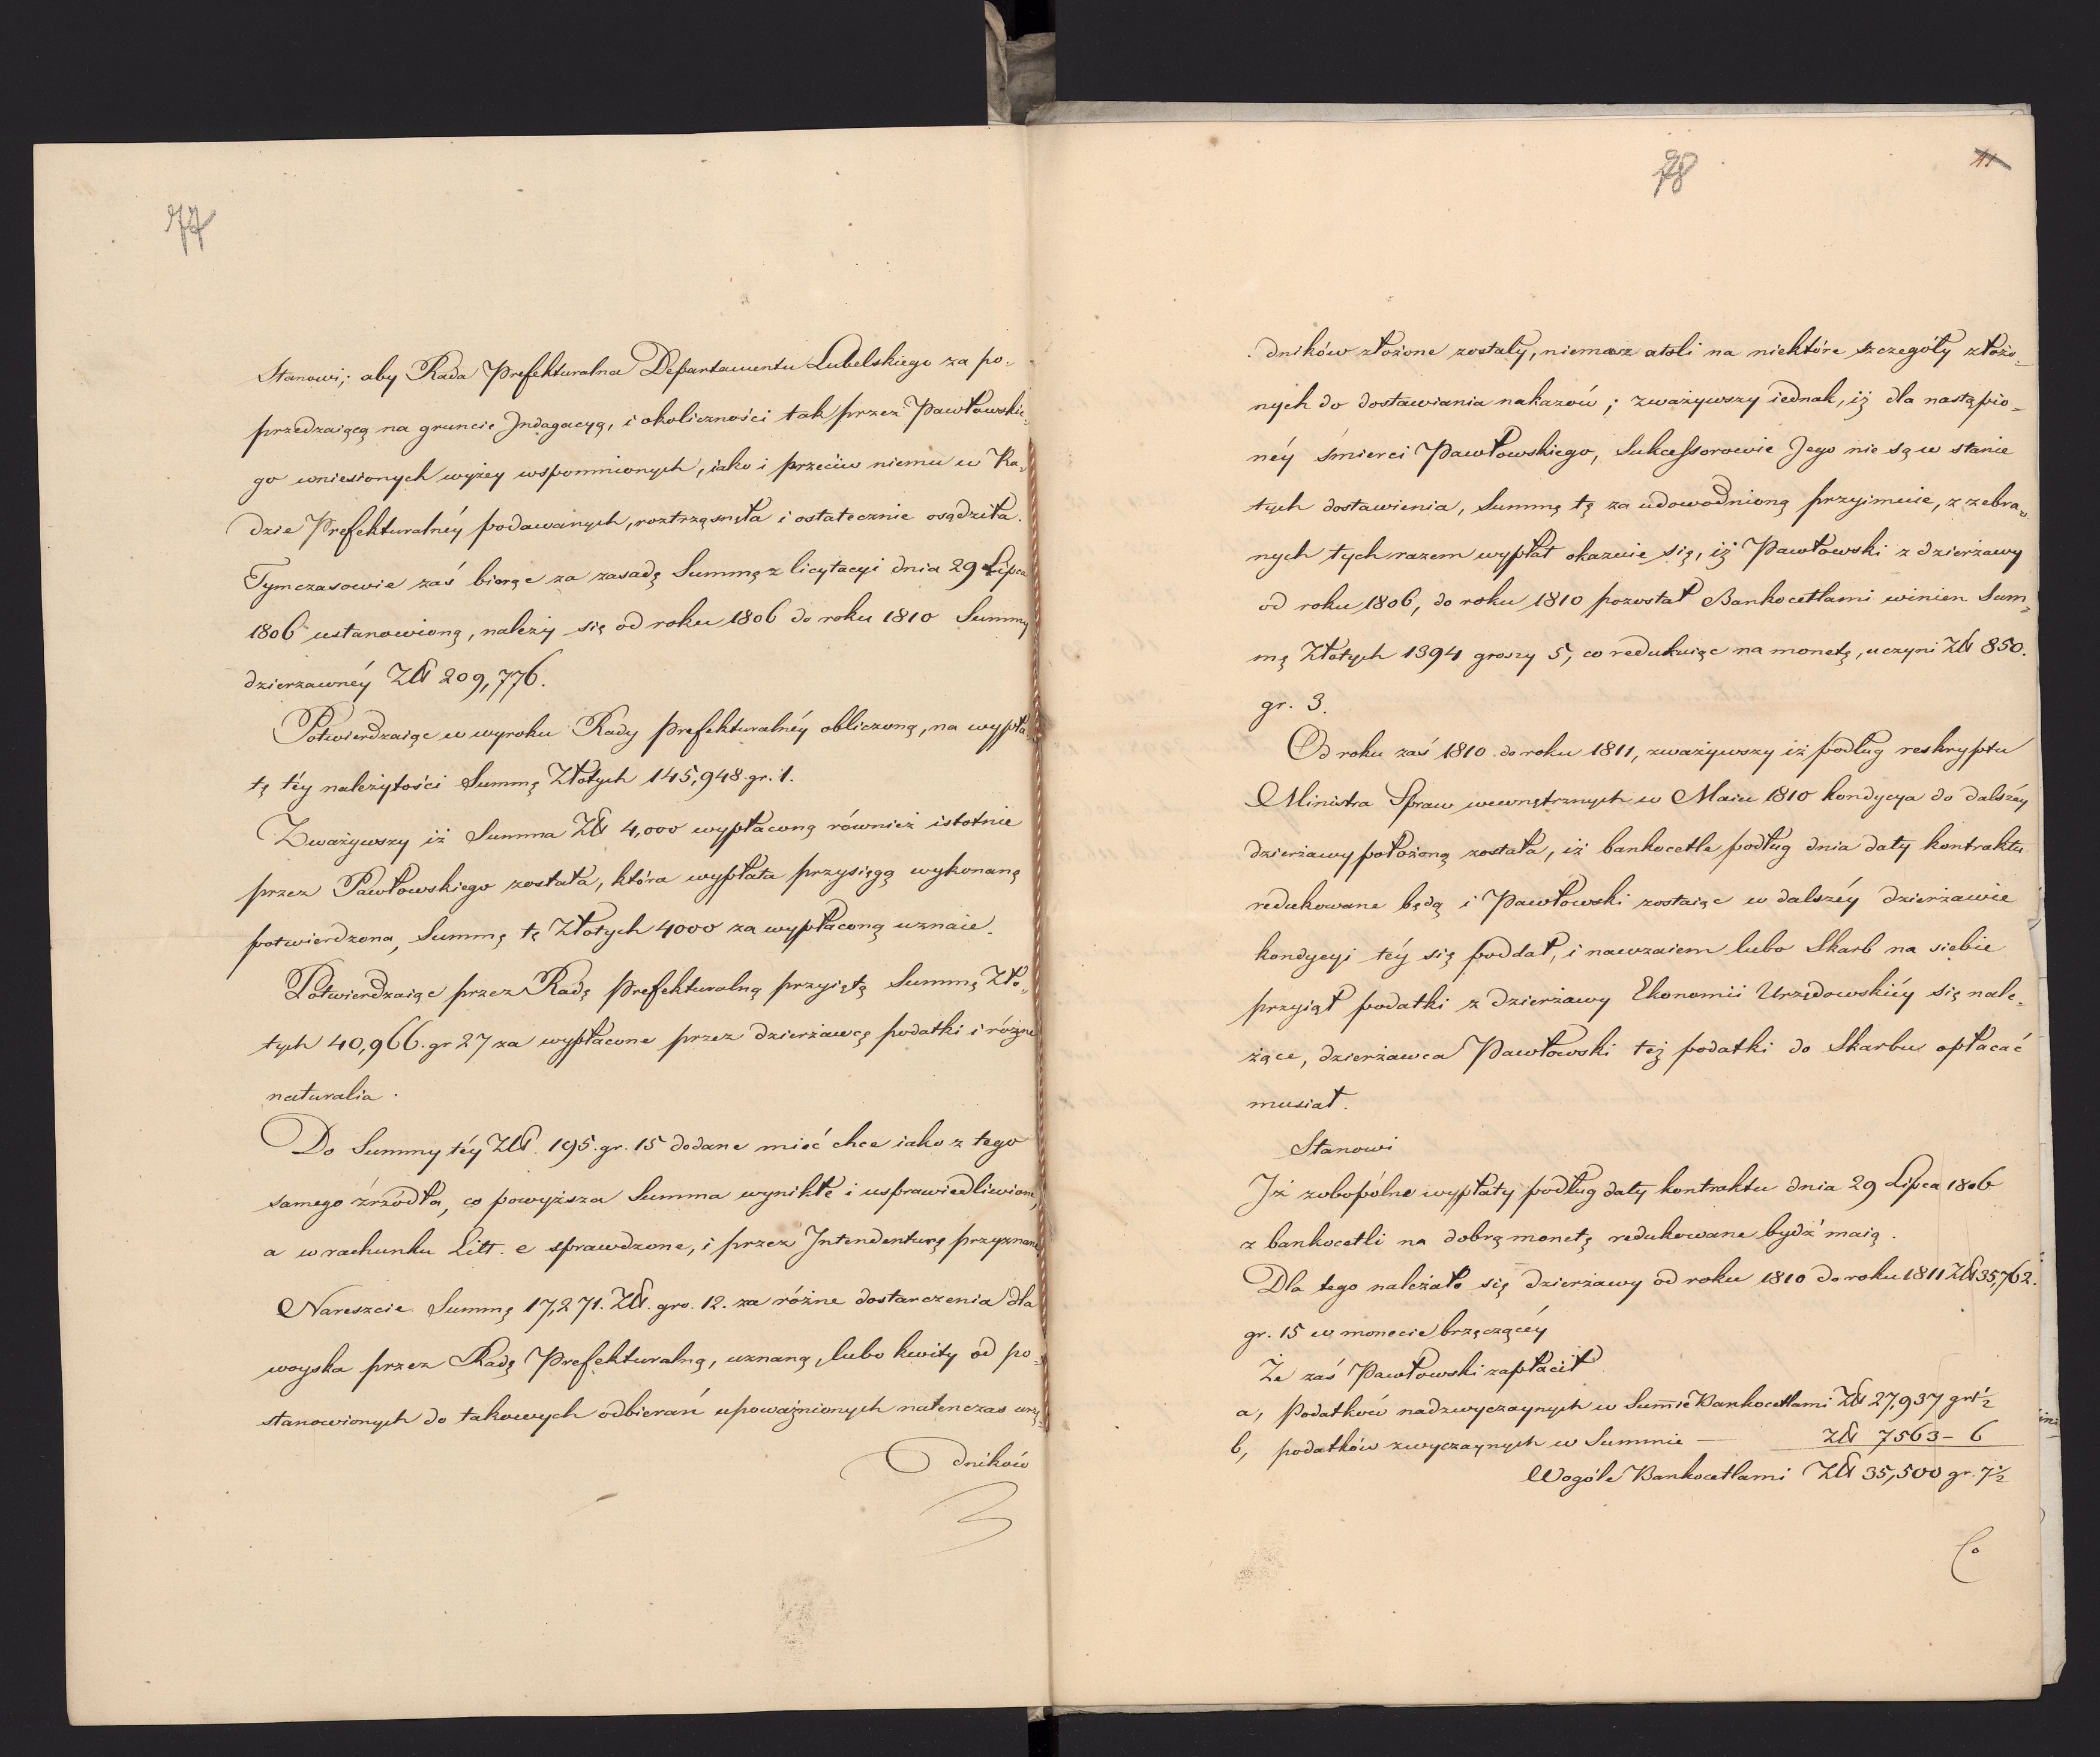 77
Stanowi; aby Rada Prefekturalna Departamentu Lubelskiego za po-
przedzaiącą na gruncie Jndagacyą, i okoliczności tak przez Pawłowskie-
go wniesionych wyżey wspomnionych, iako i przeciw niemu w Ra-
dzie Prefekturalnéy podawanych, roztrząsnęła i ostatecznie osądziła.
Tymczasowie zaś biorąc za zasadę Summę z licytacyi dnia 29 Lipca
1806 ustanowioną, należy się od roku 1806 do roku 1810 Summy
dzierzawnéy Złł 209,776.
Potwierdzaiąc w wyroku Rady Prefekturalnéy obliczoną, na wypła-
tę téy należytości Summę Złotych 145,948 gr. 1.
Zważywszy iż Summa Złł 4,000 wypłaconą również istotnie
przez Pawłowskiego została, która wypłata przysięgą wykonaną
potwierdzona, Summę tę Złotych 4000 za wypłaconą uznaie.
Potwierdzaiąc przez Radę Prefekturalną przyiętą Summę Zło-
tych 40,966. gr 27 za wypłacone przez dzierżawcę podatki i różne
naturalia.
Do Summy téy Złł. 195. gr. 15 dodane mieć chce iako z tego
samego źrzódła, co powyższa Summa wynikłe i usprawiedliwione,
a w rachunku Litt. e sprawdzone, i przez Intendenturę przyznane,
Nareszcie Summę 17,271. Złł. gro. 12. za różne dostarczenia dla
woyska przez Radę Prefekturalną, uznaną, lubo kwity od po-
stanowionych do takowych odbierań upoważnionych natenczas urzę-
dników
78
11
dników złożone zostały, niemasz atoli na niektóre szczegóły złożo-
nych do dostawiania nakazów; zważywszy iednak, iż dla nastąpio-
néy śmierci Pawłowskiego, Sukcessorowie Jego nie są w stanie
tych dostawienia, Summę tę za udowodnioną przyimuie, z zebra-
nych tych razem wypłat okazuie się, iż Pawłowski z dzierżawy
od roku 1806, do roku 1810 pozostał Bankocetlami winien Sum-
mę Złotych 1394 groszy 5, co redukuiąc na monetę, uczyni Złł 850.
gr. 3.
Od roku zaś 1810 do roku 1811, zważywszy iż podług reskryptu
Ministra Spraw wewnętrznych w Maiu 1810 kondycya do dalszéy
dzierżawy położoną została, iż bankocetle podług dnia daty kontraktu
redukowane będą i Pawłowski zostaiąc w dalszéy dzierżawie
kondycyi téy się poddał, i nawzaiem lubo Skarb na siebie
przyiął podatki z dzierżawy Ekonomii Urzędowskiéy się nale-
żące, dzierżawca Pawłowski też podatki do Skarbu opłacać
musiał.
Stanowi
Iż zobopólne wypłaty podług daty kontraktu dnia 29 Lipca 1806
z bankocetli na dobrą monetę redukowane bydź maią.
Dla tego należało się dzierżawy od roku 1810 do roku 1811 Złł 35,762.
gr. 15 w monecie brzęczącéy
Że zaś Pawłowski zapłacił
a, Podatków nadzwyczaynych w Summie Bankocetlami Złł 27,937 gr 1½
b, podatków zwyczaynych w Summie — Złł 7563 – 6
Wogóle Bankocetlami Złł 35,500 gr. 7½
Co